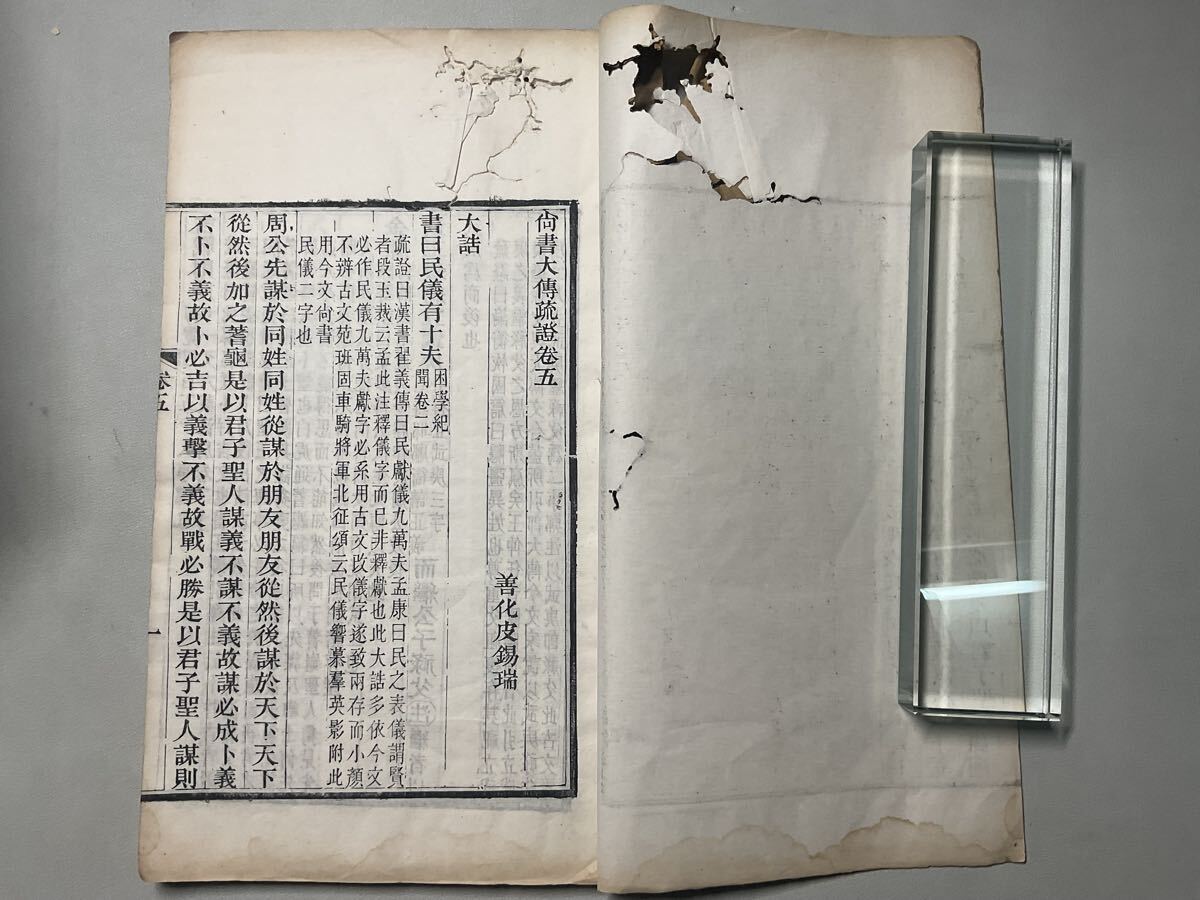 尚書大傳疏證卷五
善化皮錫瑞
大誥
書曰民儀有十夫
困學紀
聞卷二
疏證曰漢書翟義傳曰民獻儀九萬夫孟康曰民之表儀謂賢
者段玉裁云孟此注釋儀字而已非釋獻也此大誥多依今文
必作民儀九萬夫獻字必系用古文改儀字遂致兩存而小顏
不辨古文苑班固車騎將軍北征頌云民儀響慕羣英影附此
用今文尚書
民儀二字也
周公先謀於同姓同姓從謀於朋友朋友從然後謀於天下天下
從然後加之蓍龜是以君子聖人謀義不謀不義故謀必成卜義
不卜不義故卜必吉以義擊不義故戰必勝是以君子聖人謀則
卷五
一